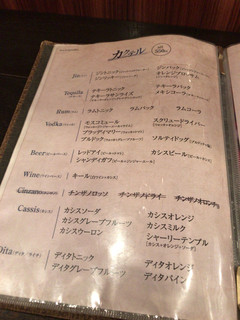 カクテル
ジントニック
Tequila テキーラトニック テキーラバック
テキーラサンライズ メキシコーラ
Rum ラムトニック ラムバック ラムコーラ
Vodka モスコミュール スクリュードライバー
ブラッディマリー
ブルドック ソルティドッグ
Beer レッドアイ カシスビール
シャンディガフ
Wine キール
Cinzano チンザノロッソ チンザノドライ チンザノオレンジ
Cassis カシスソーダ カシスオレンジ
カシスグレープフルーツ カシスミルク
カシスウーロン シャーリーテンプル
Dita ディタトニック ディタオレンジ
ディタグレープフルーツ ディタパイン